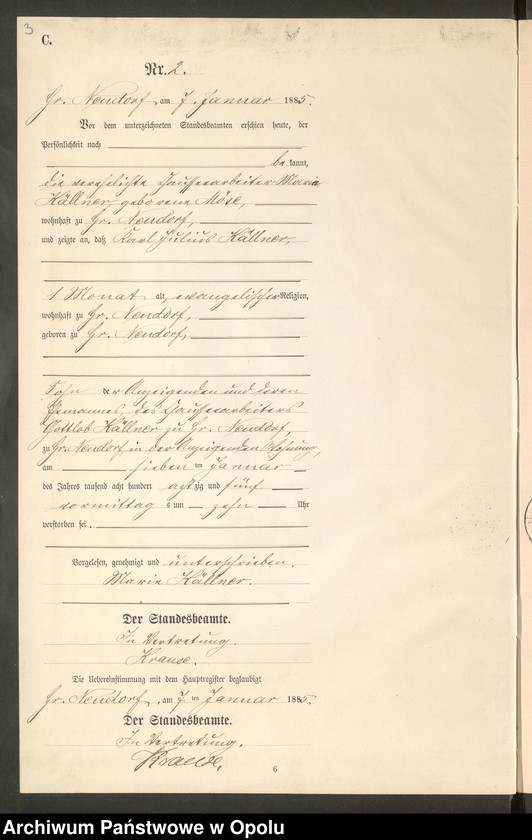 3
C.
Nr. 2.
Gr. Neudorf, am 7. Januar 1885.
Vor dem unterzeichneten Standesbeamten erschien heute, der
Persönlichkeit nach
be kannt,
die verehelichte Chausseearbeiter Maria
Källner, geborene Möse,
wohnhaft zu Gr. Neudorf,
und zeigte an, daß Karl Julius Källner,
1 Monat alt, evangelischer Religion,
wohnhaft zu Gr. Neudorf,
geboren zu Gr. Neudorf,
Sohn der Anzeigenden und deren
Ehemannes, des Chausseearbeiters
Gottlob Källner zu Gr. Neudorf,
zu Gr. Neudorf in der Anzeigenden Wohnung,
am sieben ten Januar
des Jahres tausend acht hundert achtzig und fünf
vormittag s um zehn Uhr
verstorben sei.
Vorgelesen, genehmigt und unterschrieben.
Marie Källner.
Der Standesbeamte.
In Vertretung.
Krause.
Die Uebereinstimmung mit dem Hauptregister beglaubigt
Gr. Neudorf, am 7. ten Januar 1885.
Der Standesbeamte.
In Vertretung.
Krause.
6
Archiwum Państwowe w Opolu